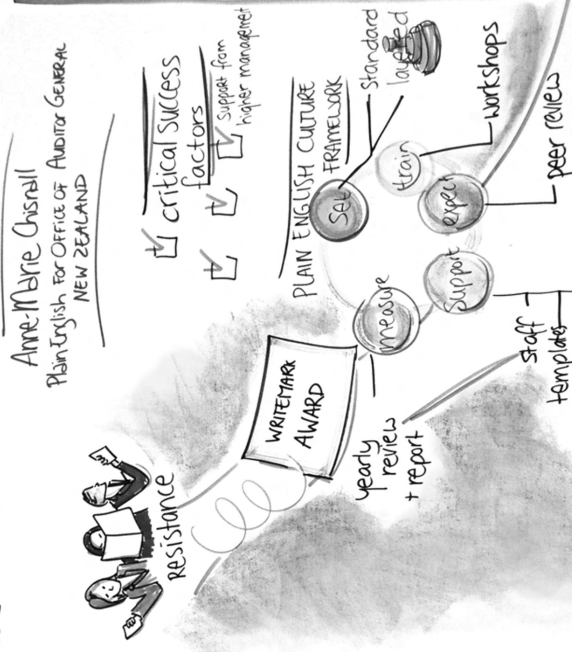 Anne-Marie Chisnall
Plain English For OFFICE OF AUDITOR GENERAL
NEW ZEALAND
critical success
factors
support from
higher management
PLAIN ENGLISH CULTURE
FRAMEWORK
Set
standard
layered
train
workshops
expect
peer review
support
staff
templates
measure
yearly
review
+ report
WRITEMARK
AWARD
Resistance